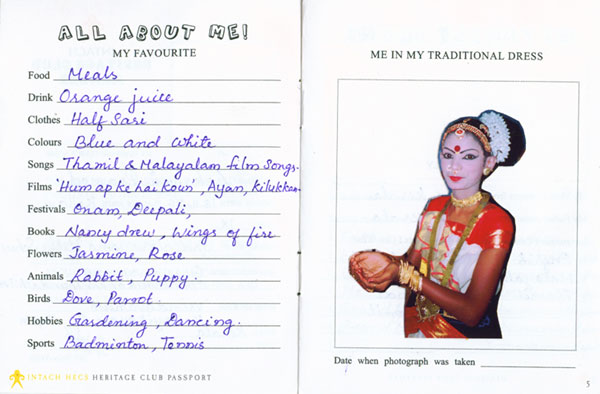 ALL ABOUT ME!
MY FAVOURITE
Food Meals
Drink Orange juice
Clothes Half Sari
Colours Blue and White
Songs Thamil & Malayalam film Songs.
Films 'Hum ap ke hai koun', Ayan, Kilukkam
Festivals Onam, Deepali,
Books Nancy drew, Wings of fire
Flowers Jasmine, Rose
Animals Rabbit, Puppy.
Birds Dove, Parrot.
Hobbies Gardening, Dancing.
Sports Badminton, Tennis
INTACH HECS HERITAGE CLUB PASSPORT
ME IN MY TRADITIONAL DRESS
Date when photograph was taken
5